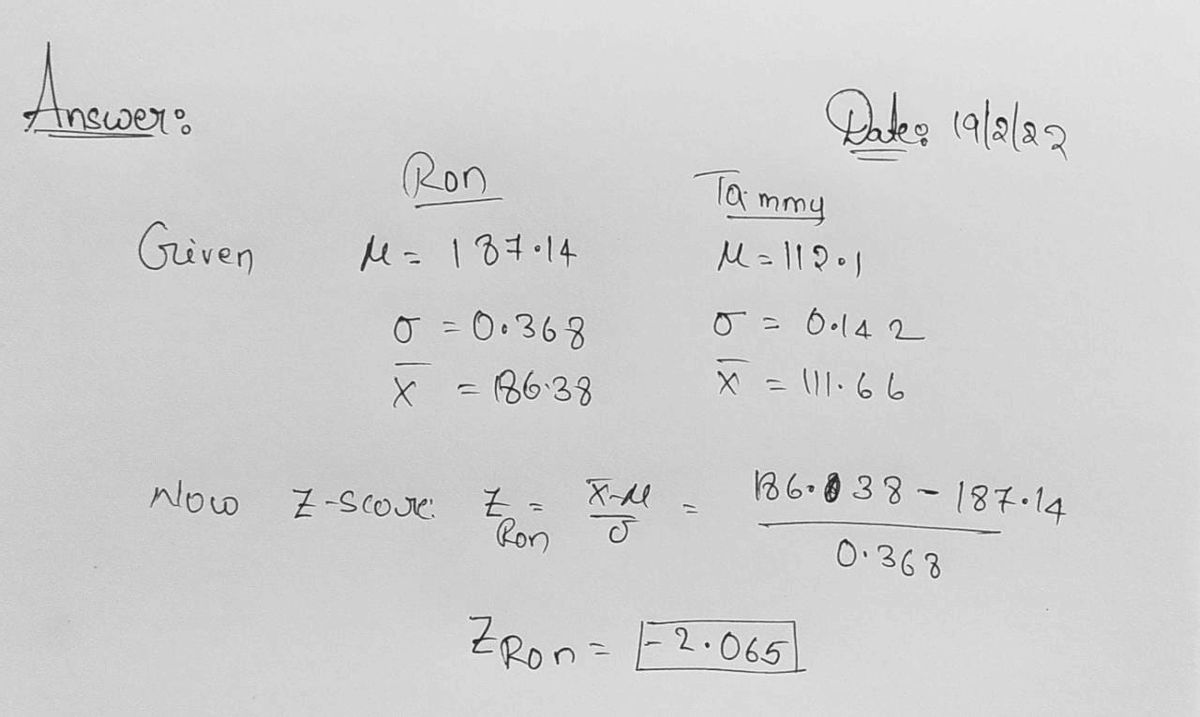 Answer:
Date: 19/2/22
Ron Tammy
Given μ = 187.14 μ = 112.1
σ = 0.368 σ = 0.142
x̄ = 186.38 x̄ = 111.66
Now Z-score: Z Ron = x̄-μ / σ = 186.38 - 187.14 / 0.368
Z Ron = -2.065